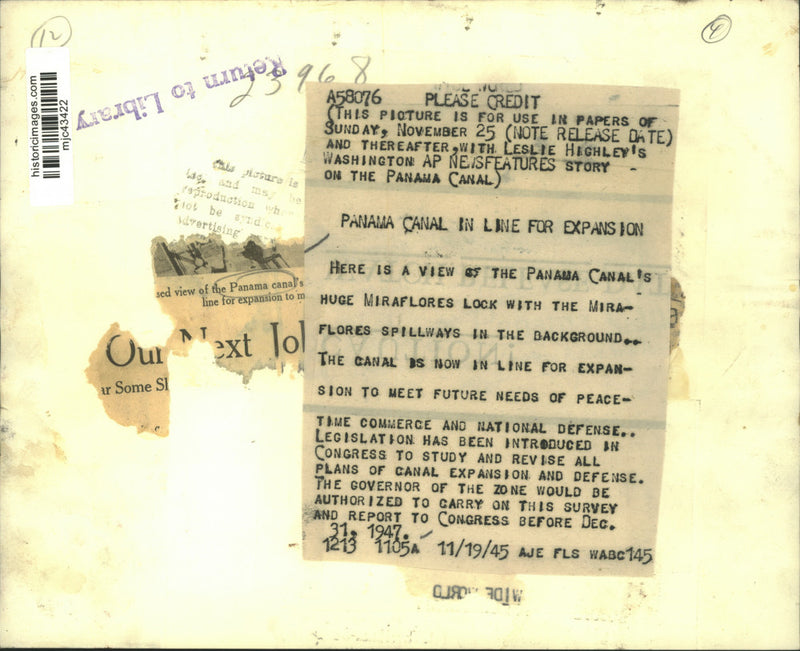 12
4
historicimages.com
mjc43422
Return to Library
23968
This picture is
and may be
reproduction
not be
advertising
view of the Panama canal's
line for expansion to m
Our Next Jo
Some
A58076 PLEASE CREDIT
(THIS PICTURE IS FOR USE IN PAPERS OF
SUNDAY, NOVEMBER 25 (NOTE RELEASE DATE)
AND THEREAFTER, WITH LESLIE HIGHLEY'S
WASHINGTON AP NEWSFEATURES STORY
ON THE PANAMA CANAL)
PANAMA CANAL IN LINE FOR EXPANSION
HERE IS A VIEW OF THE PANAMA CANAL'S
HUGE MIRAFLORES LOCK WITH THE MIRA-
FLORES SPILLWAYS IN THE BACKGROUND..
THE CANAL IS NOW IN LINE FOR EXPAN-
SION TO MEET FUTURE NEEDS OF PEACE-
TIME COMMERCE AND NATIONAL DEFENSE..
LEGISLATION HAS BEEN INTRODUCED IN
CONGRESS TO STUDY AND REVISE ALL
PLANS OF CANAL EXPANSION AND DEFENSE.
THE GOVERNOR OF THE ZONE WOULD BE
AUTHORIZED TO CARRY ON THIS SURVEY
AND REPORT TO CONGRESS BEFORE DEC.
31, 1947.
1213 1105A 11/19/45 AJE FLS WABC145
WIDE WORLD